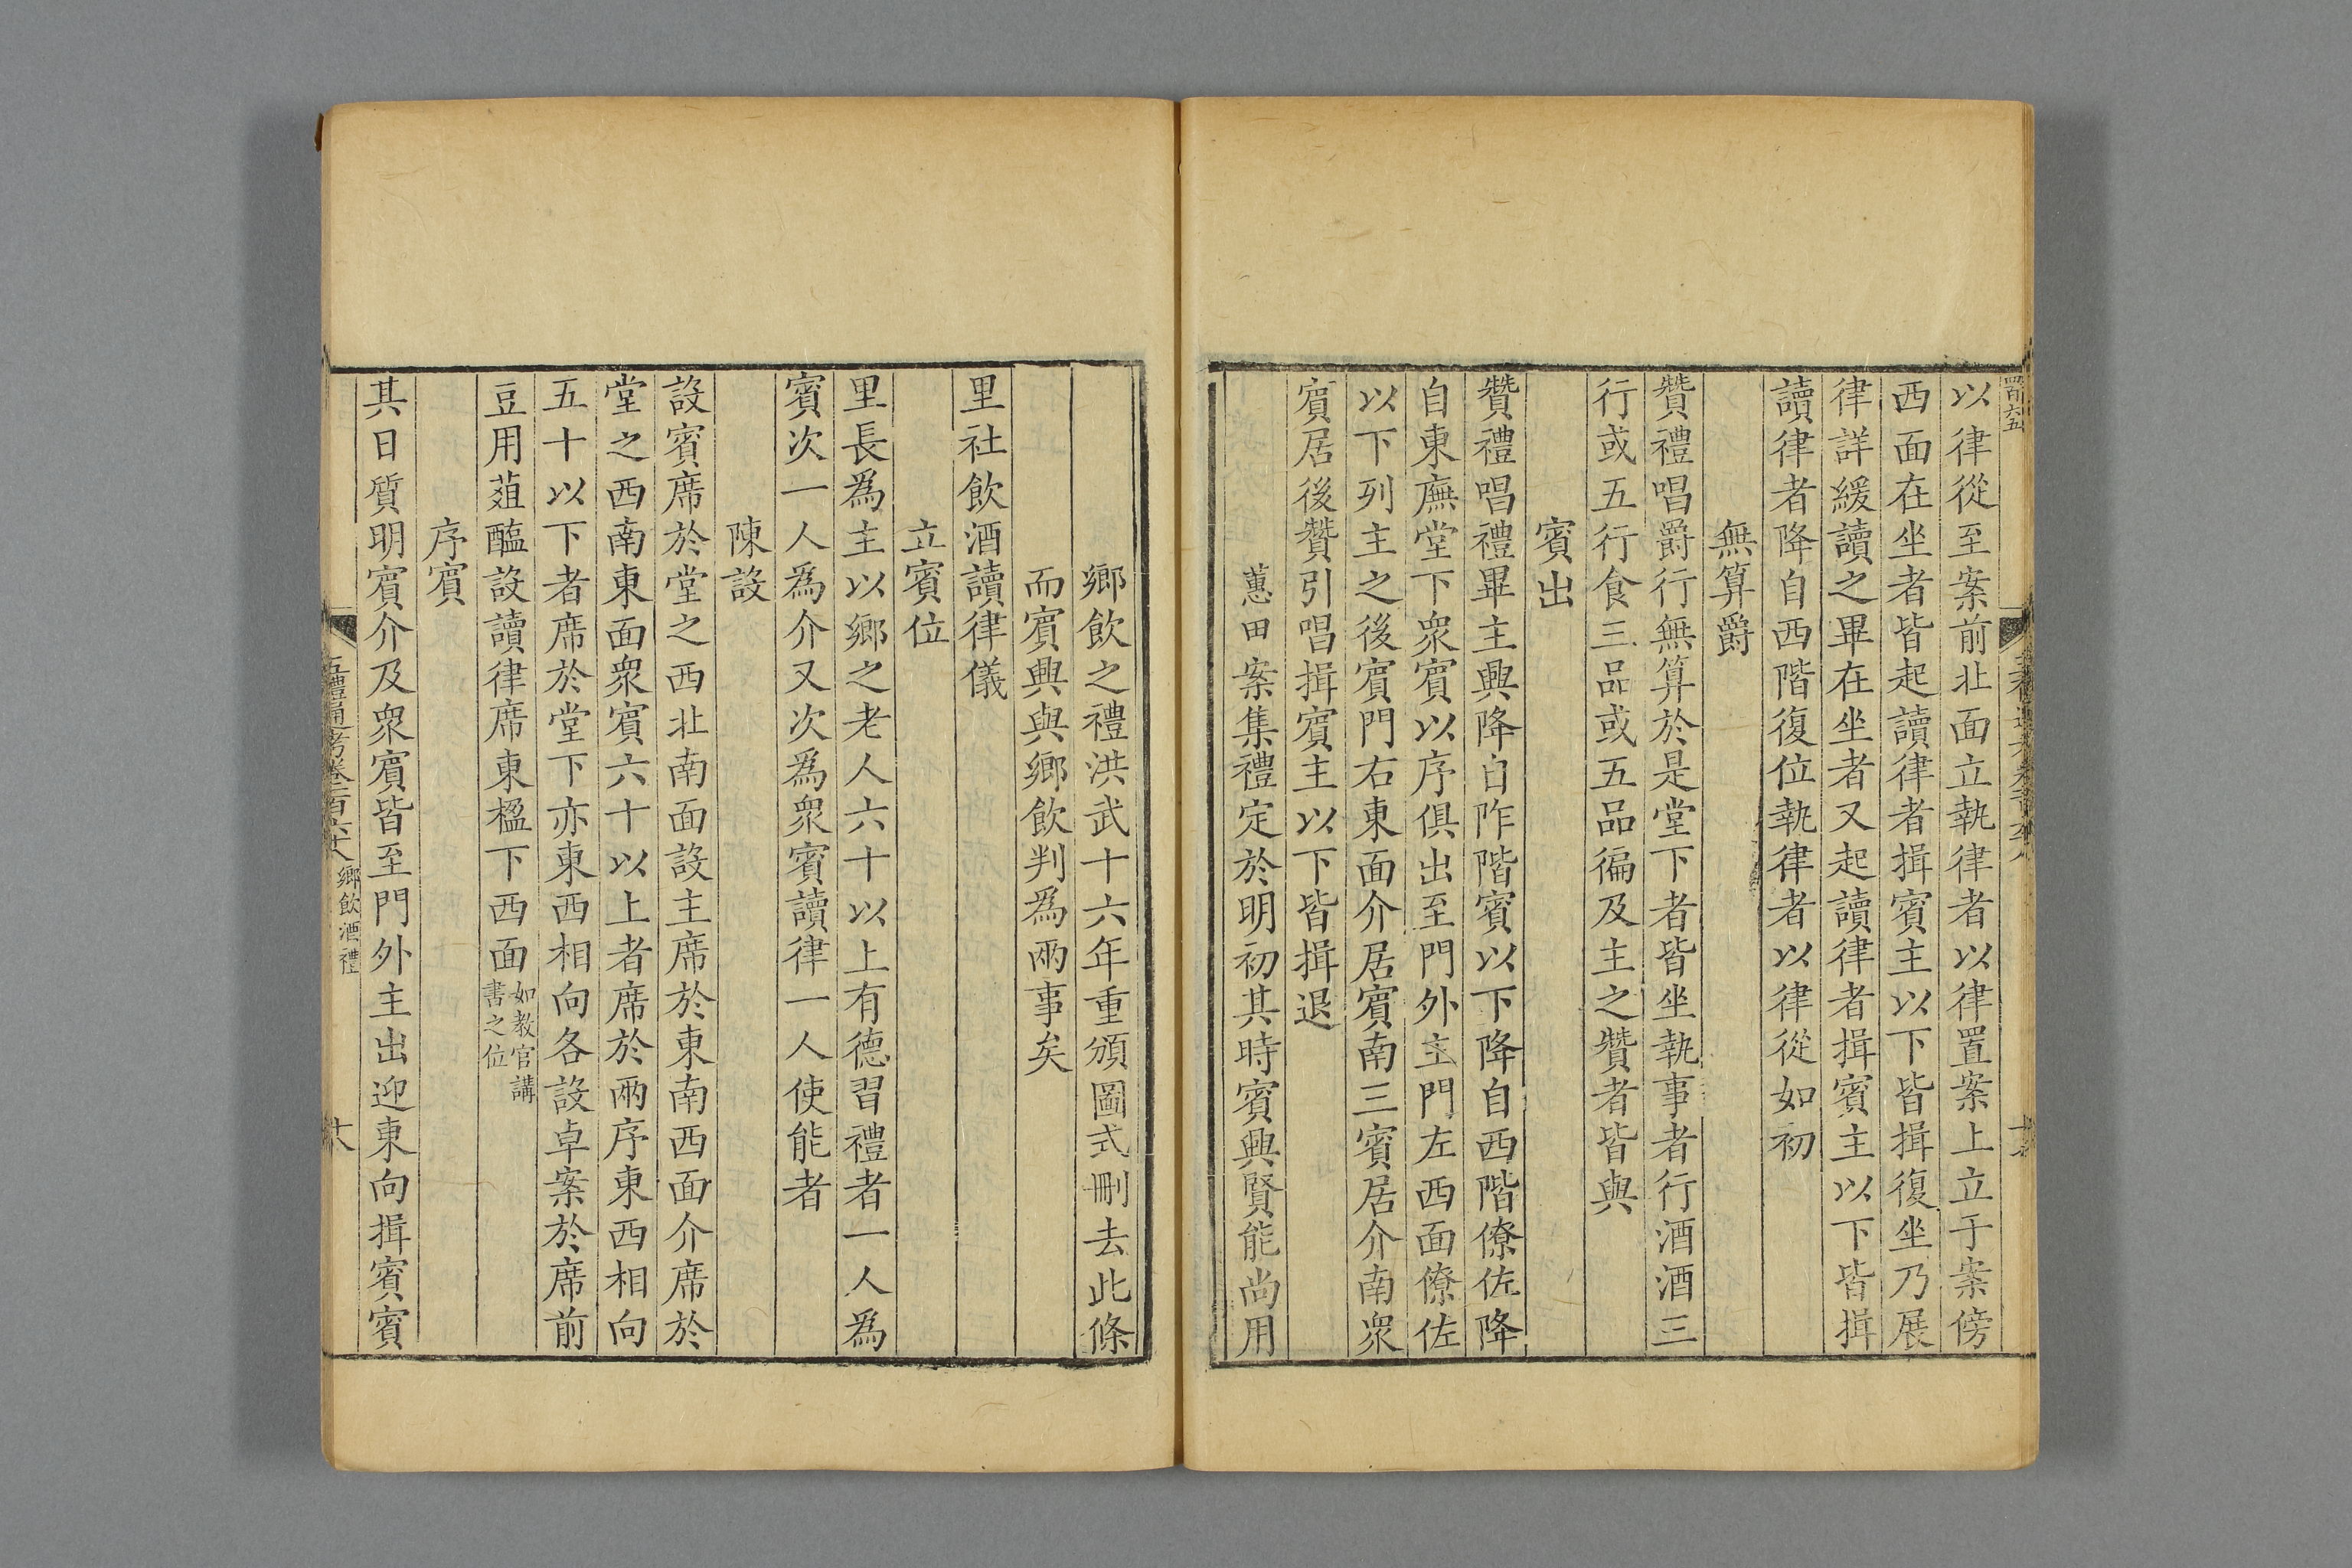 以律從至案前北面立執律者以律置案上立于案傍
西面在坐者皆起讀律者揖賓主以下皆揖復坐乃展
律詳緩讀之畢在坐者又起讀律者揖賓主以下皆揖
讀律者降自西階復位執律者以律從如初
無算爵
贊禮唱爵行無算於是堂下者皆坐執事者行酒酒三
行或五行食三品或五品徧及主之贊者皆與
賓出
贊禮唱禮畢主興降自阼階賓以下降自西階僚佐降
自東廡堂下衆賓以序俱出至門外主門左西面僚佐
以下列主之後賓門右東面介居賓南三賓居介南衆
賓居後贊引唱揖賓主以下皆揖退
蕙田案集禮定於明初其時賓興賢能尚用
鄉飲之禮洪武十六年重頒圖式刪去此條
而賓興與鄉飲判爲兩事矣
里社飲酒讀律儀
立賓位
里長爲主以鄉之老人六十以上有德習禮者一人爲
賓次一人爲介又次爲衆賓讀律一人使能者
陳設
設賓席於堂之西北南面設主席於東南西面介席於
堂之西南東面衆賓六十以上者席於兩序東西相向
五十以下者席於堂下亦東西相向各設卓案於席前
豆用葅醢設讀律席東楹下西面如教官講
書之位
序賓
其日質明賓介及衆賓皆至門外主出迎東向揖賓賓
五禮通考卷一百六十八 鄉飲酒禮 十八